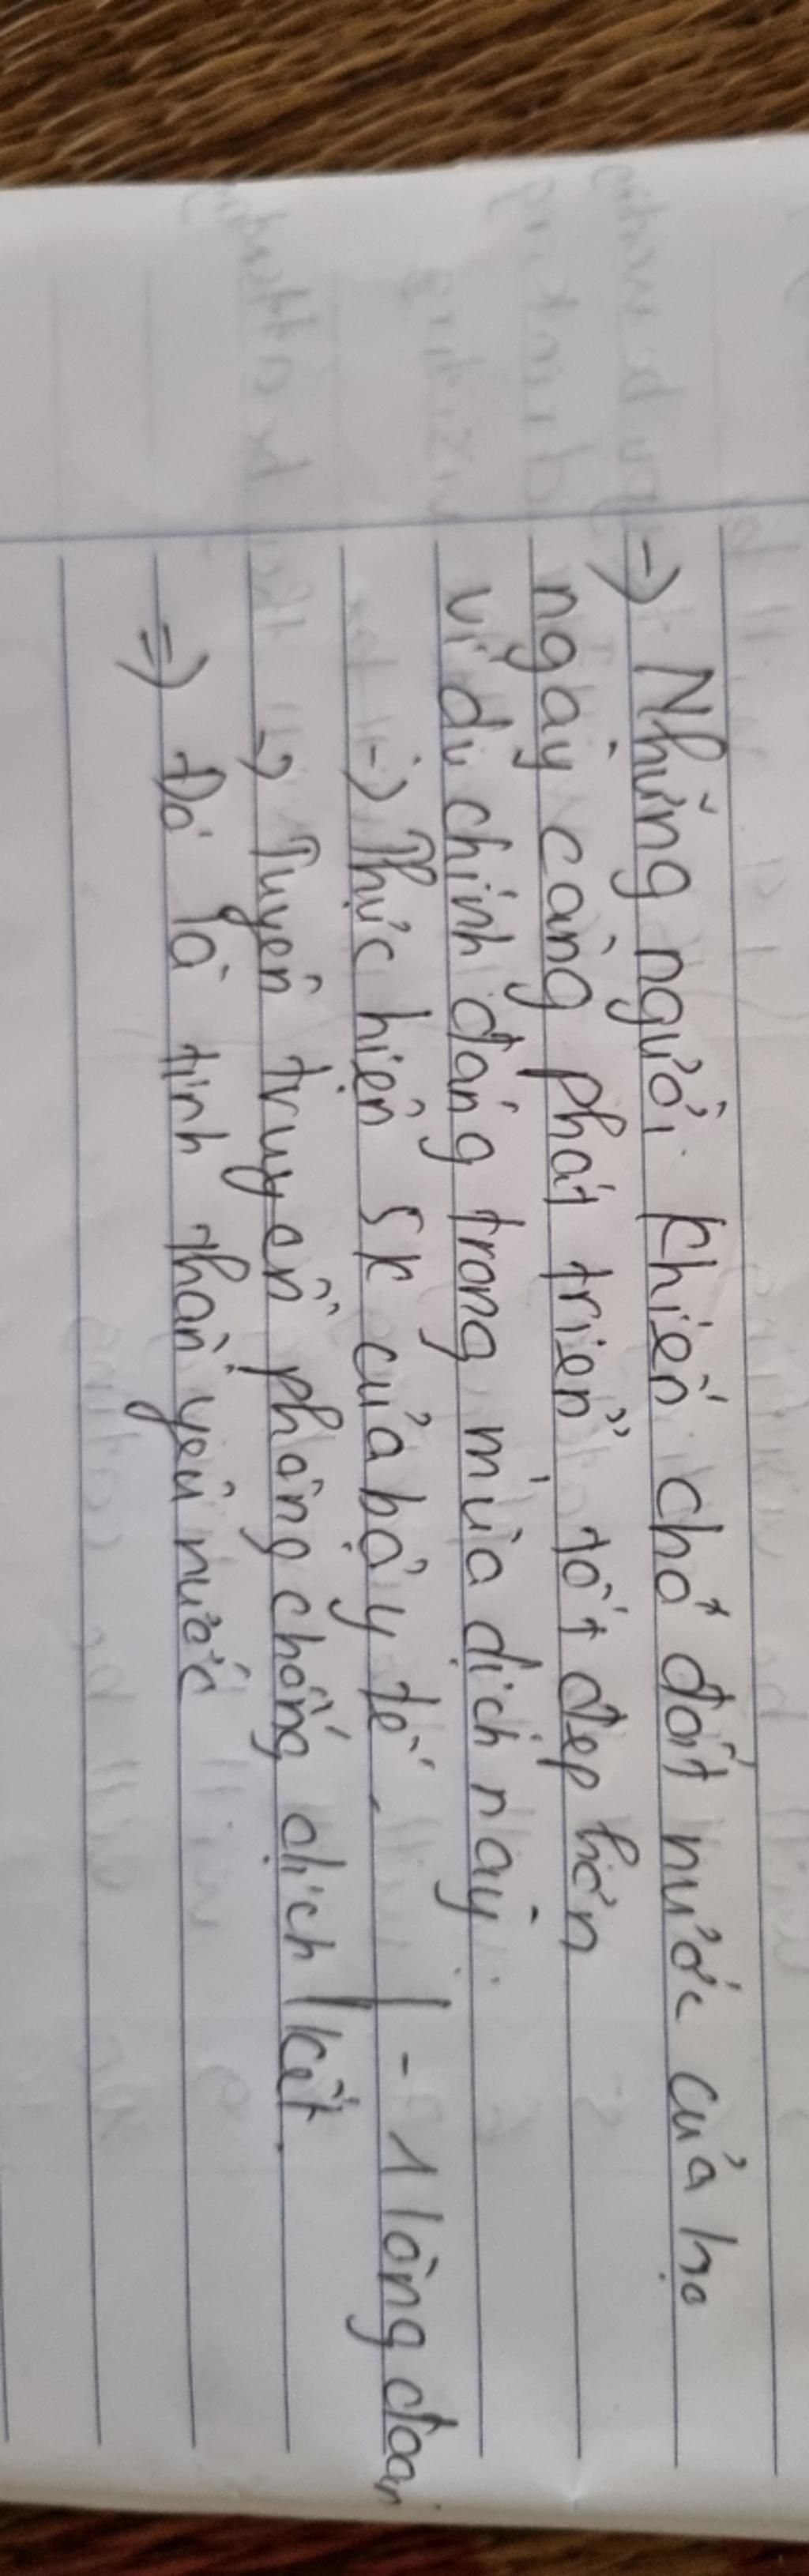 -> Những người khiến cho đất nước của họ
ngày càng phát triển tốt đẹp hơn
ví dụ chính đáng trong mùa dịch này
-> Thực hiện 5K của bộ y tế. | - 1 lòng đoàn
-> Tuyên truyền phòng chống dịch | kết.
=> Đó là tinh thần yêu nước